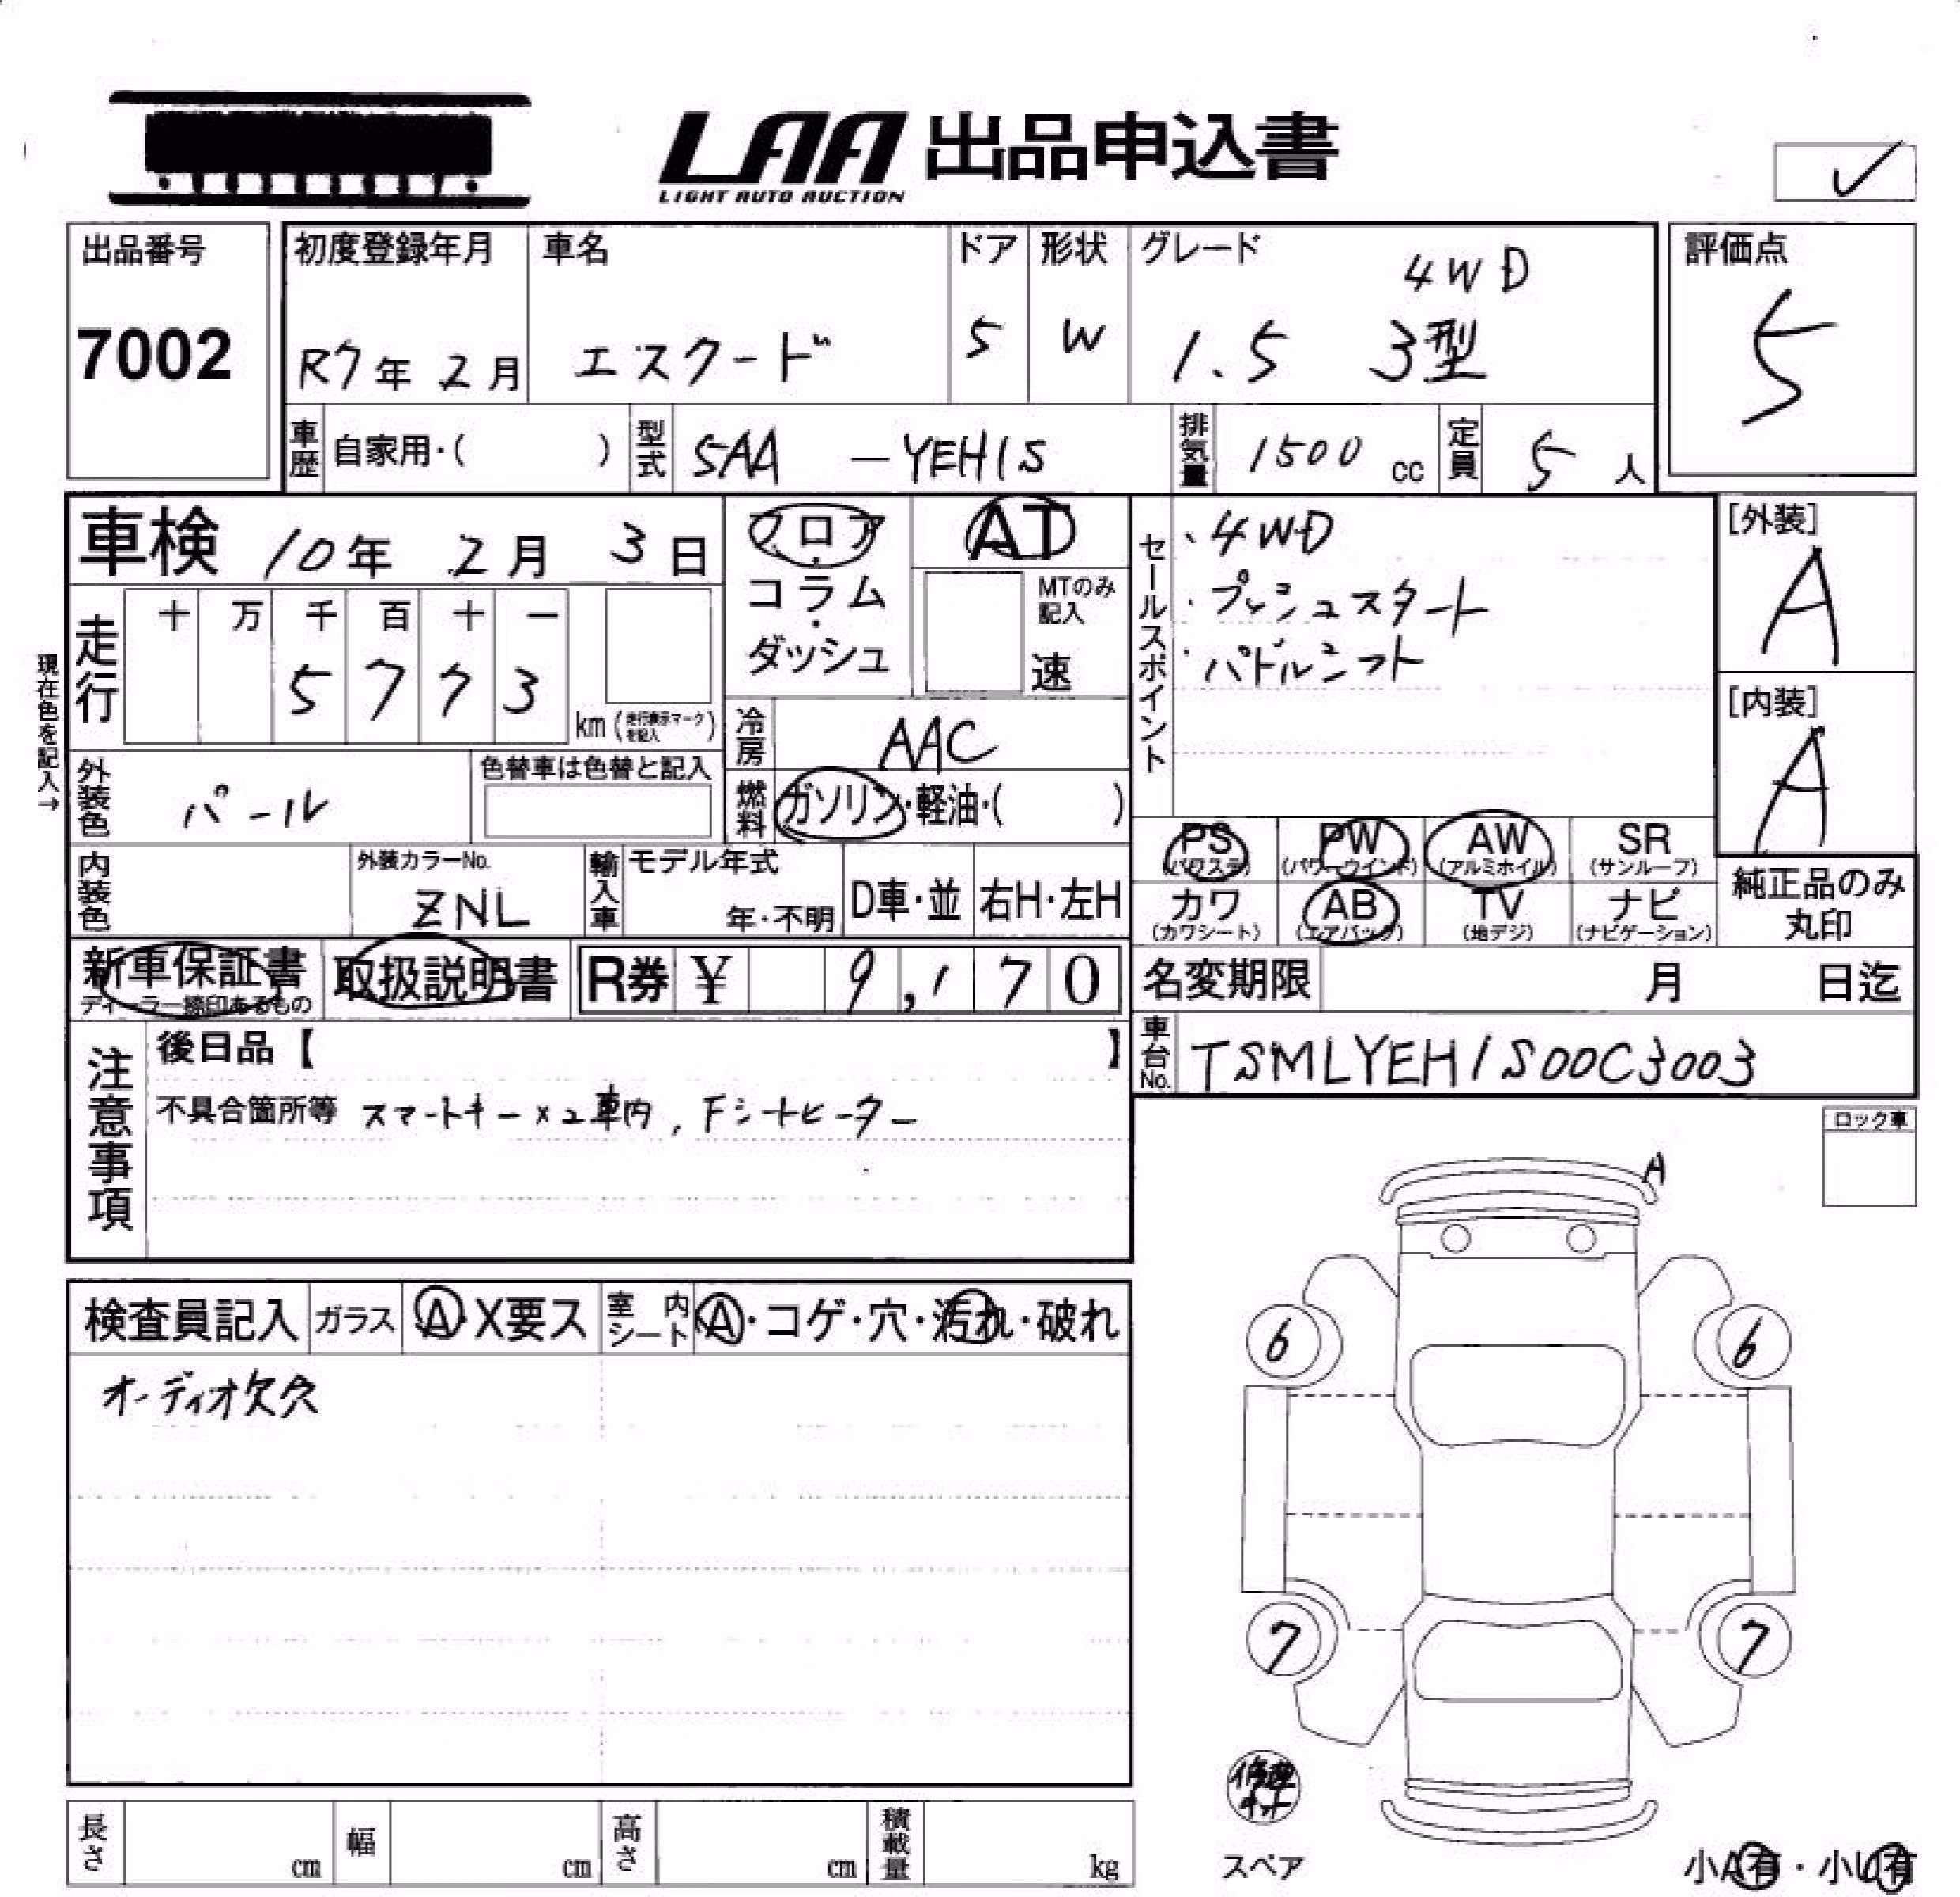 LAA 出品申込書
LIGHT AUTO AUCTION
出品番号
7002
初度登録年月
R7年 2月
車名
エスクード
ドア
5
形状
W
グレード
4WD
1.5 3型
評価点
5
車歴 自家用・( )
型式 SAA -YEH1S
排気量 1500 cc
定員 5 人
車検 10年 2月 3日
フロア・コラム・ダッシュ
AT
MTのみ記入
速
セールスポイント
・4WD
・プッシュスタート
・パドルシフト
[外装]
A
[内装]
A
現在色を記入→
走行
十 万 千 百 十 一
5 7 7 3
km (走行表示マークを記入)
冷房 AAC
外装色 パール
色替車は色替と記入
燃料 ガソリン・軽油・( )
内装色
外装カラーNo.
ZNL
輸入車
モデル年式
年・不明
D車・並
右H・左H
PS (パワステ)
PW (パワーウインド)
AW (アルミホイル)
SR (サンルーフ)
カワ (カワシート)
AB (エアバック)
TV (地デジ)
ナビ (ナビゲーション)
純正品のみ丸印
新車保証書
ディーラー捺印あるもの
取扱説明書
R券 ¥ 9,170
名変期限 月 日迄
車台No. TSMLYEH1S00C3003
注意事項
後日品【 】
不具合箇所等 スマートキー×2車内, Fシートヒーター
ロック車
A
検査員記入
ガラス A・X要ス
室内シート A・コゲ・穴・汚れ・破れ
オーディオ欠久
6 6
7 7
修理キット
スペア
長さ cm
幅 cm
高さ cm
積載量 kg
小A有・小U有